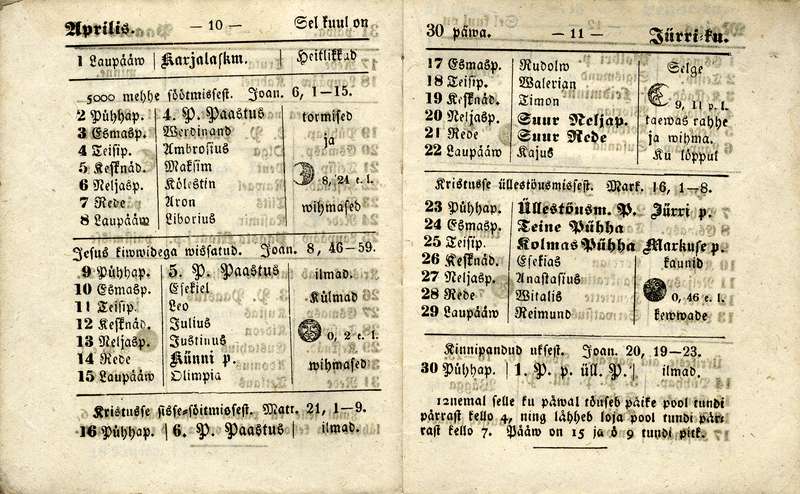 Aprilis. — 10 — Sel kuul on
1 Laupääw Karjalaskm. Heitlikkud
5000 mehhe söötmissest. Joan. 6, 1—15.
2 Pühhap. 4. P. Paastus tormised
3 Esmasp. Werdinand
4 Teisip. Ambrosius ja
5 Kesknäd. Maksim
6 Neljasp. Kölestin 8, 24 e. l.
7 Rede Aron
8 Laupääw Liborius wihmased
Jesus kiwwidega wissatud. Joan. 8, 46—59.
9 Pühhap. 5. P. Paastus ilmad.
10 Esmasp. Esekiel
11 Teisip. Leo Külmad
12 Kesknäd. Julius
13 Neljasp. Justinus 0, 2 e. l.
14 Rede Künni p.
15 Laupääw Olimpia wihmased
Kristusse sisse-söitmisest. Matt. 21, 1—9.
16 Pühhap. 6. P. Paastus ilmad.
30 päwa. — 11 — Jürri-ku.
17 Esmasp. Rudolw Selge
18 Teisip. Walerian
19 Kesknäd. Timon 9, 11 p. l.
20 Neljasp. Suur Neljap. taewas rahhe
21 Rede Suur Rede ja wihma.
22 Laupääw Kajus Ku löppul
Kristusse üllestöusmissest. Mark. 16, 1—8.
23 Pühhap. Üllestöusm. P. Jürri p.
24 Esmasp. Teine Pühha
25 Teisip. Kolmas Pühha Markuse p.
26 Kesknäd. Esekias kaunid
27 Neljasp. Anastasius
28 Rede Witalis 0, 46 e. l.
29 Laupääw Reimund kewwade
Kinnipandud uksest. Joan. 20, 19—23.
30 Pühhap. 1. P. p. üll. P. ilmad.
12nemal selle ku päwal töuseb päike pool tundi
pärrast kello 4, ning lähheb loja pool tundi pär-
rast kello 7. Pääw on 15 ja ö 9 tundi pitk.